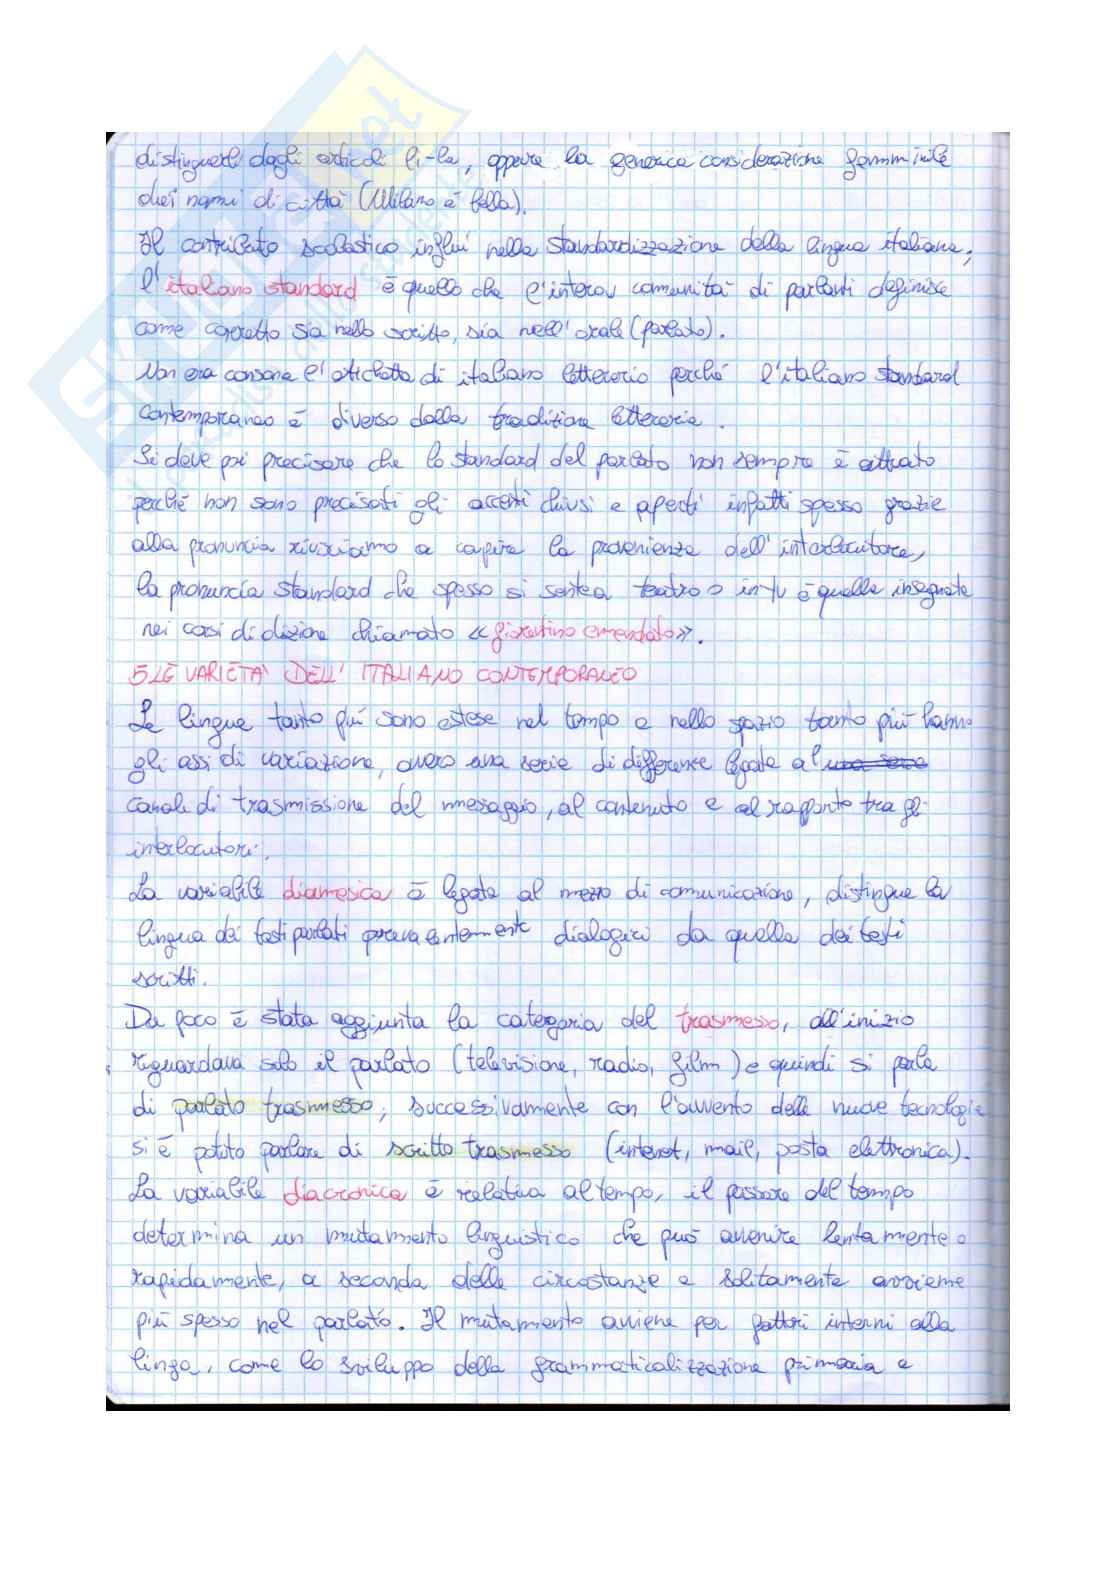 distinguerli dagli articoli li-la, oppure la generica considerazione femminile
dei nomi di città (Milano è bella).
Il contributo scolastico influì nella standardizzazione della lingua italiana;
l'italiano standard è quello che l'intera comunità di parlanti definisce
come corretto sia nello scritto, sia nell'orale (parlato).
Non era consona l'etichetta di italiano letterario perché l'italiano standard
contemporaneo è diverso dalla tradizione letteraria.
Si deve poi precisare che lo standard del parlato non sempre è attuato
perché non sono precisati gli accenti chiusi e aperti infatti spesso grazie
alla pronuncia riusciamo a capire la provenienza dell'interlocutore,
la pronuncia standard che spesso si sente a teatro o in tv è quella insegnata
nei corsi di dizione chiamato «fiorentino emendato».
5 LE VARIETA' DELL' ITALIANO CONTEMPORANEO
Le lingue tanto più sono estese nel tempo e nello spazio tanto più hanno
gli assi di variazione, ovvero una serie di differenze legate al una serie
canale di trasmissione del messaggio, al contenuto e al rapporto tra gli
interlocutori.
La variabile diamesica è legata al mezzo di comunicazione, distingue la
lingua dei testi parlati prevalentemente dialogici da quella dei testi
scritti.
Da poco è stata aggiunta la categoria del trasmesso, all'inizio
riguardava solo il parlato (televisione, radio, film) e quindi si parla
di parlato trasmesso; successivamente con l'avvento delle nuove tecnologie
si è potuto parlare di scritto trasmesso (internet, mail, posta elettronica).
La variabile diacronica è relativa al tempo, il passare del tempo
determina un mutamento linguistico che può avvenire lentamente o
rapidamente, a seconda delle circostanze e solitamente avviene
più spesso nel parlato. Il mutamento avviene per fattori interni alla
linga, come lo sviluppo della grammaticalizzazione primaria e
skuola.net